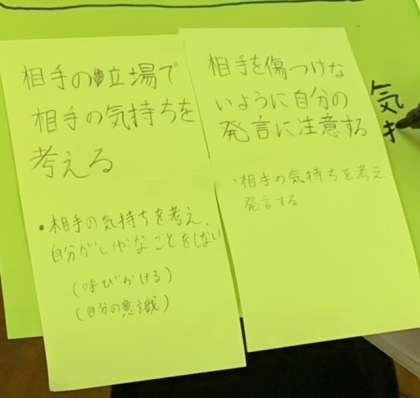 相手の立場で
相手の気持ちを
考える
・相手の気持ちを考え、
自分がいやなことをしない
(呼びかける)
(自分の意識)
相手を傷つけな
いように自分の
発言に注意する
・相手の気持ちを考え
発言する
気
持